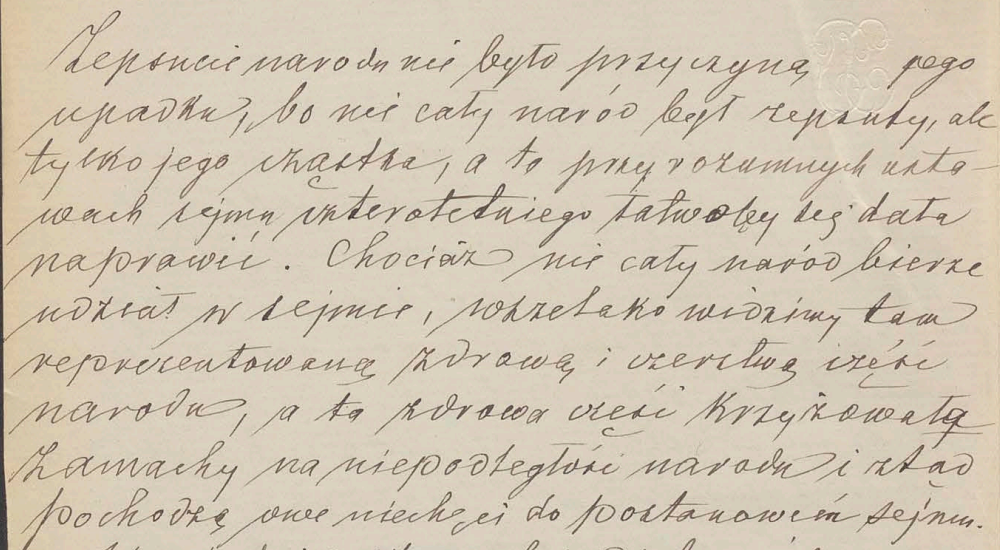 Zepsucie narodu nie było przyczyną jego
upadku, bo nie cały naród był zepsuty, ale
tylko jego cząstka, a to przy rozumnych usta-
wach sejmu czteroletniego łatwoby się dała
naprawić. Chociaż nie cały naród bierze
udział w sejmie, wszelako widzimy tam
reprezentowaną zdrową i czerstwą część
narodu, a ta zdrowa część krzyżowała
zamachy na niepodległość narodu i ztąd
pochodzą owe niechęci do postanowień sejmu.